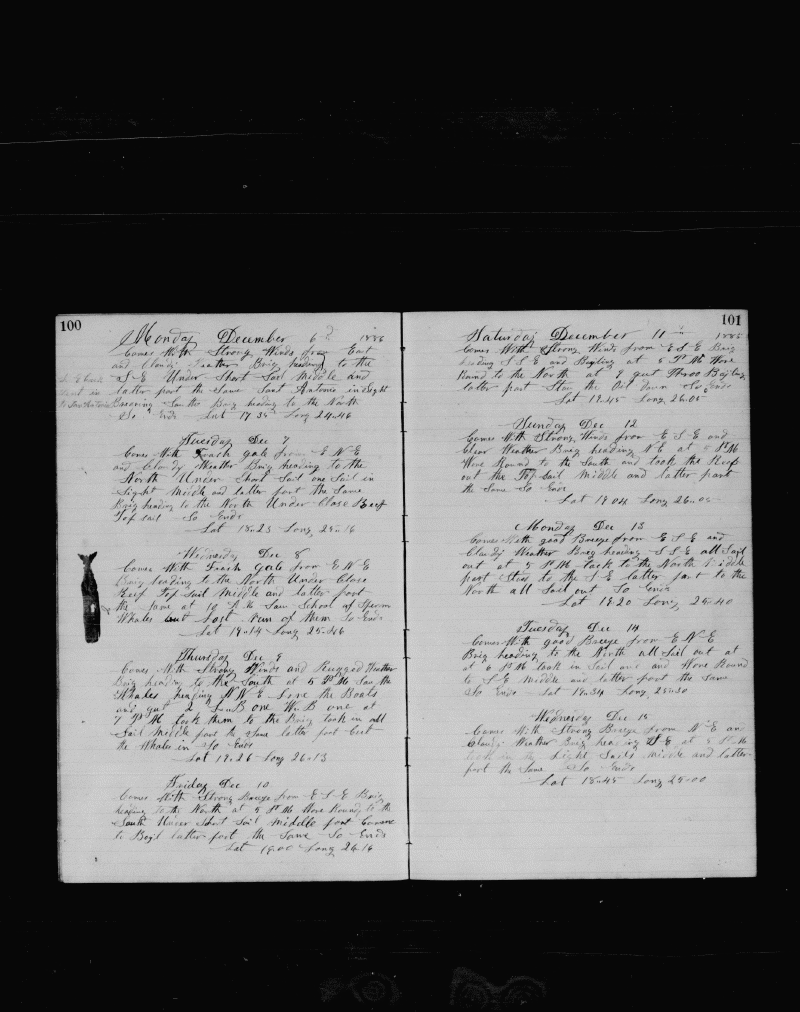 100
Monday December 6 1886
Comes With Strong Winds from East
and Cloudy Weather Brig heading to the
S E Under Short Sail Middle and
latter part the Same Sant Antonio in Sight
Bearing South Brig heading to the North
So Ends Lat 17.35 Long 24.46
Tuesday Dec 7
Comes With Fresh gale from E N E
and Cloudy Weather Brig heading to the
North Under Short Sail one Sail in
Sight Middle and latter part the Same
Brig heading to the North Under Close Reef
Top sail So Ends
Lat 18.23 Long 25.16
Wednesday Dec 8
Comes With Fresh gale from E N E
Brig heading to the North Under Close
Reef Top Sail Middle and latter part
the Same at 10 A M Saw School of Sperm
Whales but Lost Run of them So Ends
Lat 19.14 Long 25.46
Thursday Dec 9
Comes With Strong Winds and Rugged Weather
Brig heading to the South at 5 P M Saw the
Whales heading N N E Lore the Boats
and gut 2 one W B one at
7 P M took them to the Brig took in all
Sail Middle part the Same latter part Cut
the Whales in So Ends
Lat 19.26 Long 26.13
Friday Dec 10
Comes With Strong Breeze from E S E Brig
heading to the North at 5 P M Wore Round to the
South Under Short Sail Middle part Comence
to Boyl latter part the Same So Ends
Lat 19.00 Long 26.16
101
Saturday December 11
Comes With Strong Winds from E S E Brig
heading S S E and Boyling at 5 P M Wore
Round to the North at 9 gut Boyling
latter part Stow the Oil down So Ends
Lat 19.45 Long 26.05
Sunday Dec 12
Comes With Strong Winds from E S E and
Clear Weather Brig heading N E at 5 P M
Wore Round to the South and took the Reefs
out the Top Sail Middle and latter part
the Same So Ends
Lat 19.04 Long 26.00
Monday Dec 13
Comes With good Breeze from E S E and
Cloudy Weather Brig heading S S E all Sail
out at 5 P M tack to the North Middle
part to the S E latter part to the
North all Sail out So Ends
Lat 19.20 Long 25.40
Tuesday Dec 14
Comes With good Breeze from E N E
Brig heading to the North all Sail out at
at 6 P M took in Sail and Wore Round
to S E Middle and latter part the Same
So Ends Lat 19.34 Long 25.30
Wednesday Dec 15
Comes With Strong Breeze from N E and
Cloudy Weather Brig heading S E at 5 P M
took in the Light Sails Middle and latter
part the Same So Ends
Lat 18.45 Long 25.00